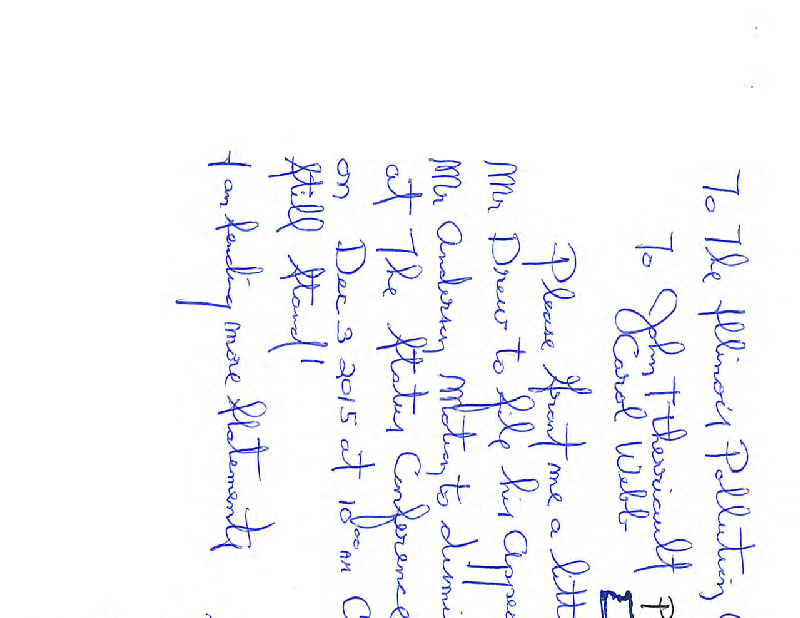 To The Illinois Pollution
To John Therriault
Carol Webb
P
Please Grant me a litt
Mr Drew to file his Appe
Mr Anderson Motion to dismi
at The Status Conference
on Dec 3 2015 at 10:00 AM C
still stand!
I am sending more statements